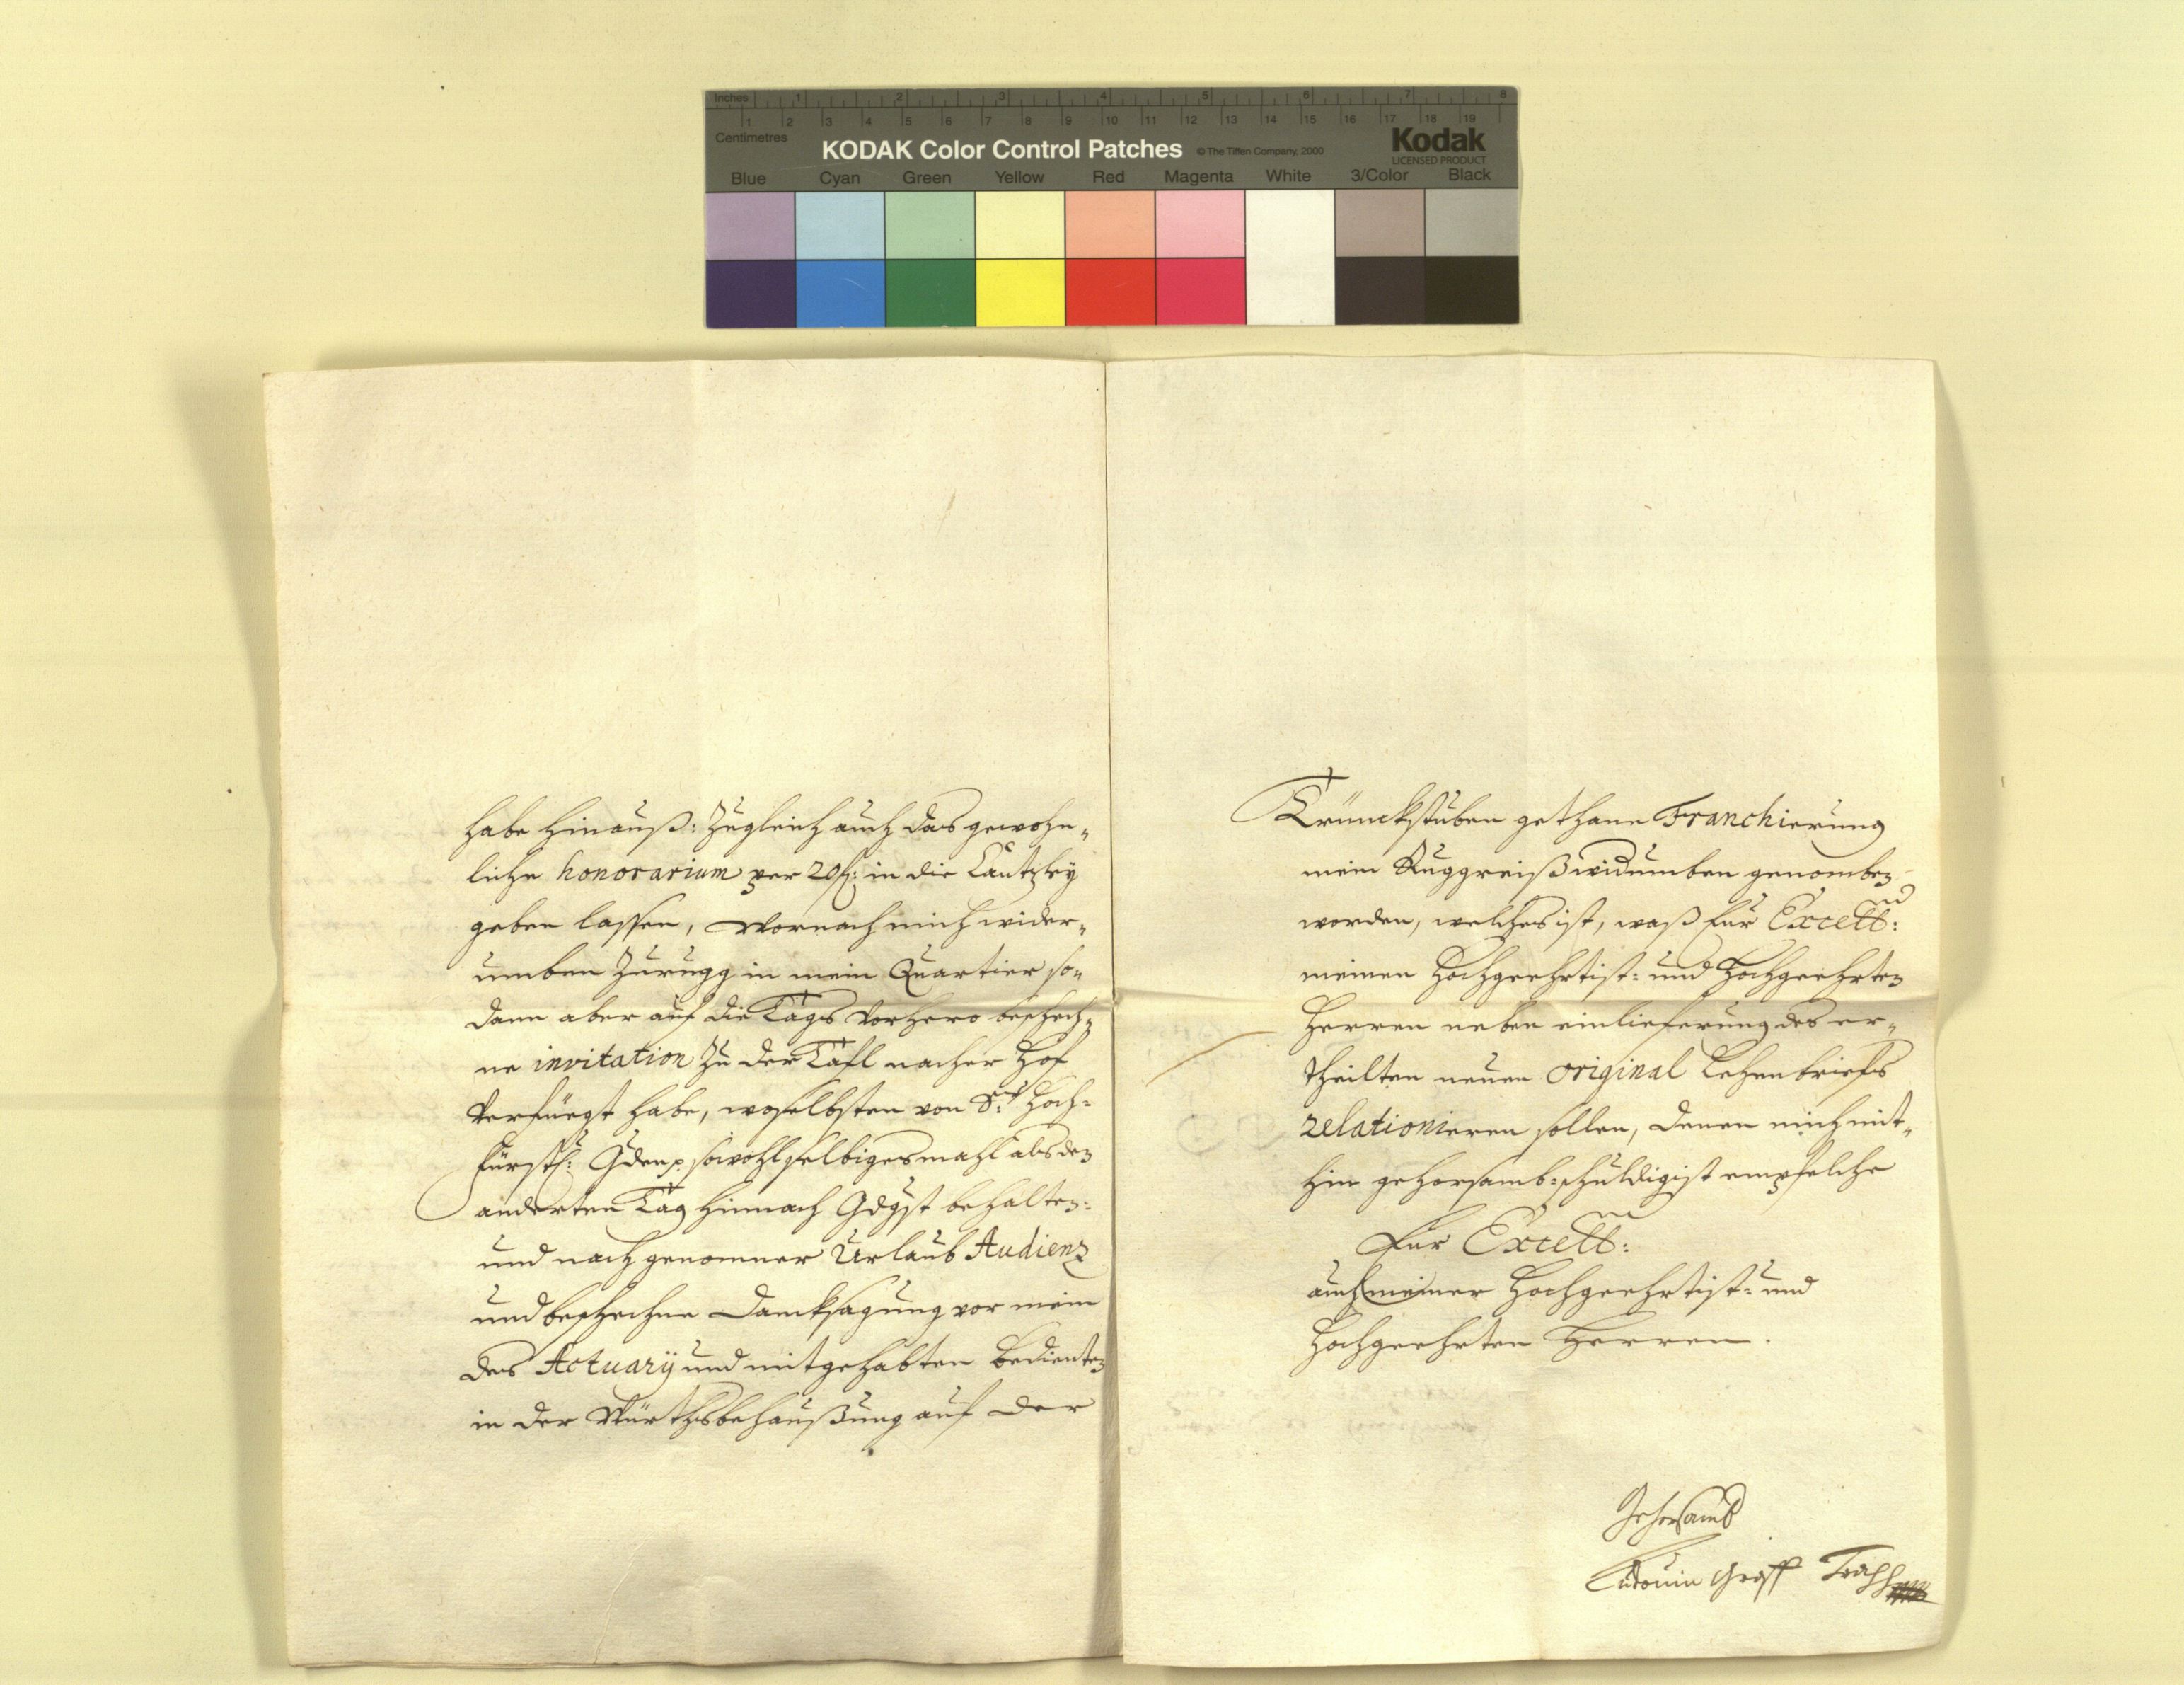 Inches 1 2 3 4 5 6 7 8
1 2 3 4 5 6 7 8 9 10 11 12 13 14 15 16 17 18 19
Centimetres
KODAK Color Control Patches © The Tiffen Company, 2000 Kodak
LICENSED PRODUCT
Blue Cyan Green Yellow Red Magenta White 3/Color Black
habe hinauß: Zugleich auch das gewohn„
liche honorarium per 20 f: in die Cantzley
geben lassen, Wornach mich wider„
umben Zurugg in mein Quartier so„
dann aber auf die Tags Vorhero beschech„
ne invitation Zu der Tafl nacher Hof
Verfüegt habe, woselbsten von Sr. Hoch=
fürstl: Gden p. sowohl selbigesmahl als den
anderten Tag hinnach Gdgst behalten:
und nach genomner Urlaub Audienz
und beschechne Dancksagung vor mein
des Actuarÿ und mitgehabten Bedienten
in der Würthsbehaußung auf der
Trünckstuben gethane Franchierung
mein Ruggreiß widumben genomben
worden, welches ist, waß Eur Excell:
meinen Hochgeehrtist= und Hochgeehrten
Herren neben einlieferung des er„
theilten neuen original Lehenbriefs
relationieren sollen, denen mich mit„
hin gehorsamb=schuldigist empfelche
Eur Excell:
auch meiner Hochgeehrtist= und
Hochgeehrten Herren.
Gehorsamb
Graff